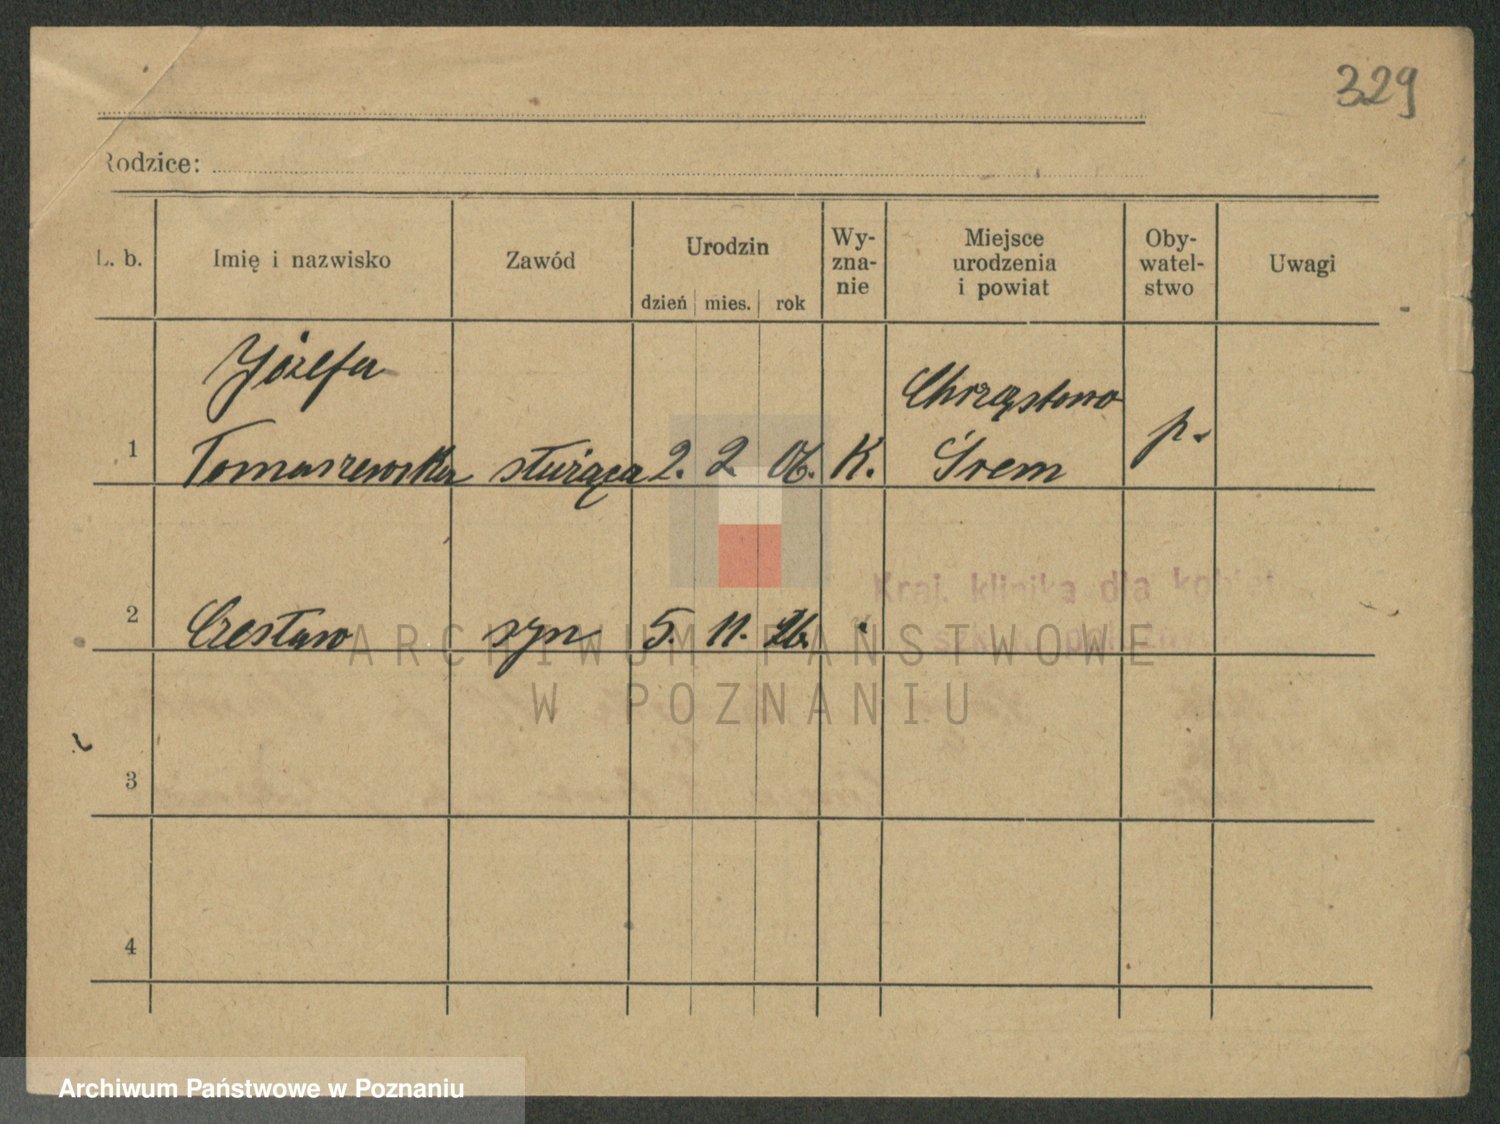 329
Rodzice:
L. b.
Imię i nazwisko
Zawód
Urodzin
dzień mies. rok
Wy-
zna-
nie
Miejsce
urodzenia
i powiat
Oby-
watel-
stwo
Uwagi
Józefa
1 Tomaszewska służąca 2. 2. 06. K. Chrząstowo
Śrem p.
Kraj. klinika dla kobiet
2 Czesław syn 5. 11. 26.
ARCHIWUM PAŃSTWOWE
W POZNANIU
3
4
Archiwum Państwowe w Poznaniu